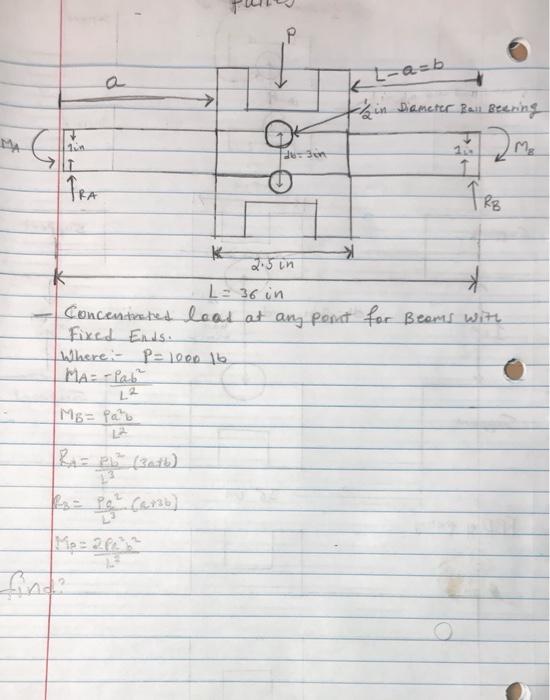 P
a
L-a=b
1/2 in Diameter Ball Bearing
MA
1in
db = 3in
1in
MB
RA
RB
2.5 in
L = 36 in
- Concentrated load at any point for Beams with
Fixed Ends.
Where:- P = 1000 lb
MA = -Pab²/L²
MB = Pa²b/L²
RA = Pb²/L³ (3a+b)
RB = Pa²/L³ (a+3b)
MP = 2Pa²b²/L³
find?